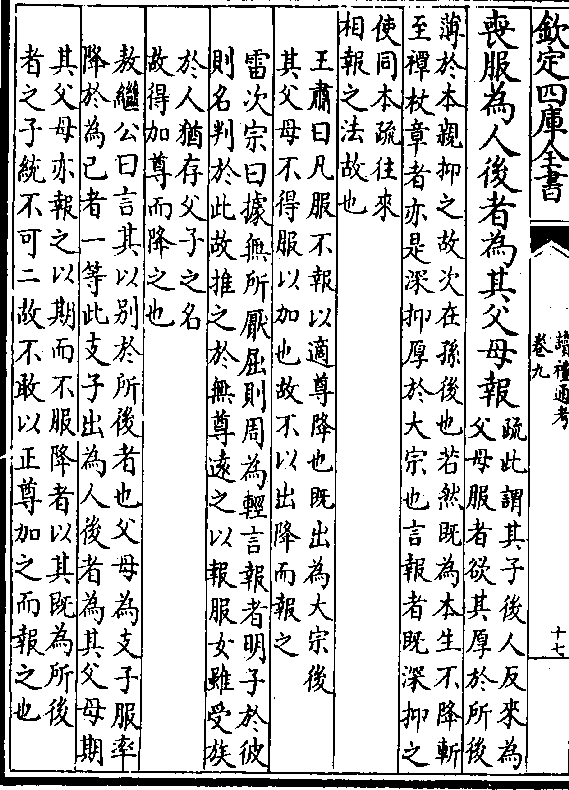 欽定四庫全書
讀禮通考
卷九
十七
喪服為人後者為其父母報
疏此謂其子後人反來為
父母服者欲其厚於所後
薄於本親抑之故次在孫後也若然既為本生不降斬
至禫杖章者亦是深抑厚於大宗也言報者既深抑之
使同本疏往來
相報之法故也
王肅曰凡服不報以適尊降也既出為大宗後
其父母不得服以加也故不以出降而報之
雷次宗曰據無所厭屈則周為輕言報者明子於彼
則名判於此故推之於無尊遠之以報服女雖受族
於人猶存父子之名
故得加尊而降之也
敖繼公曰言其以別於所後者也父母為支子服率
降於為己者一等此支子出為人後者為其父母期
其父母亦報之以期而不服降者以其既為所後
者之子統不可二故不敢以正尊加之而報之也